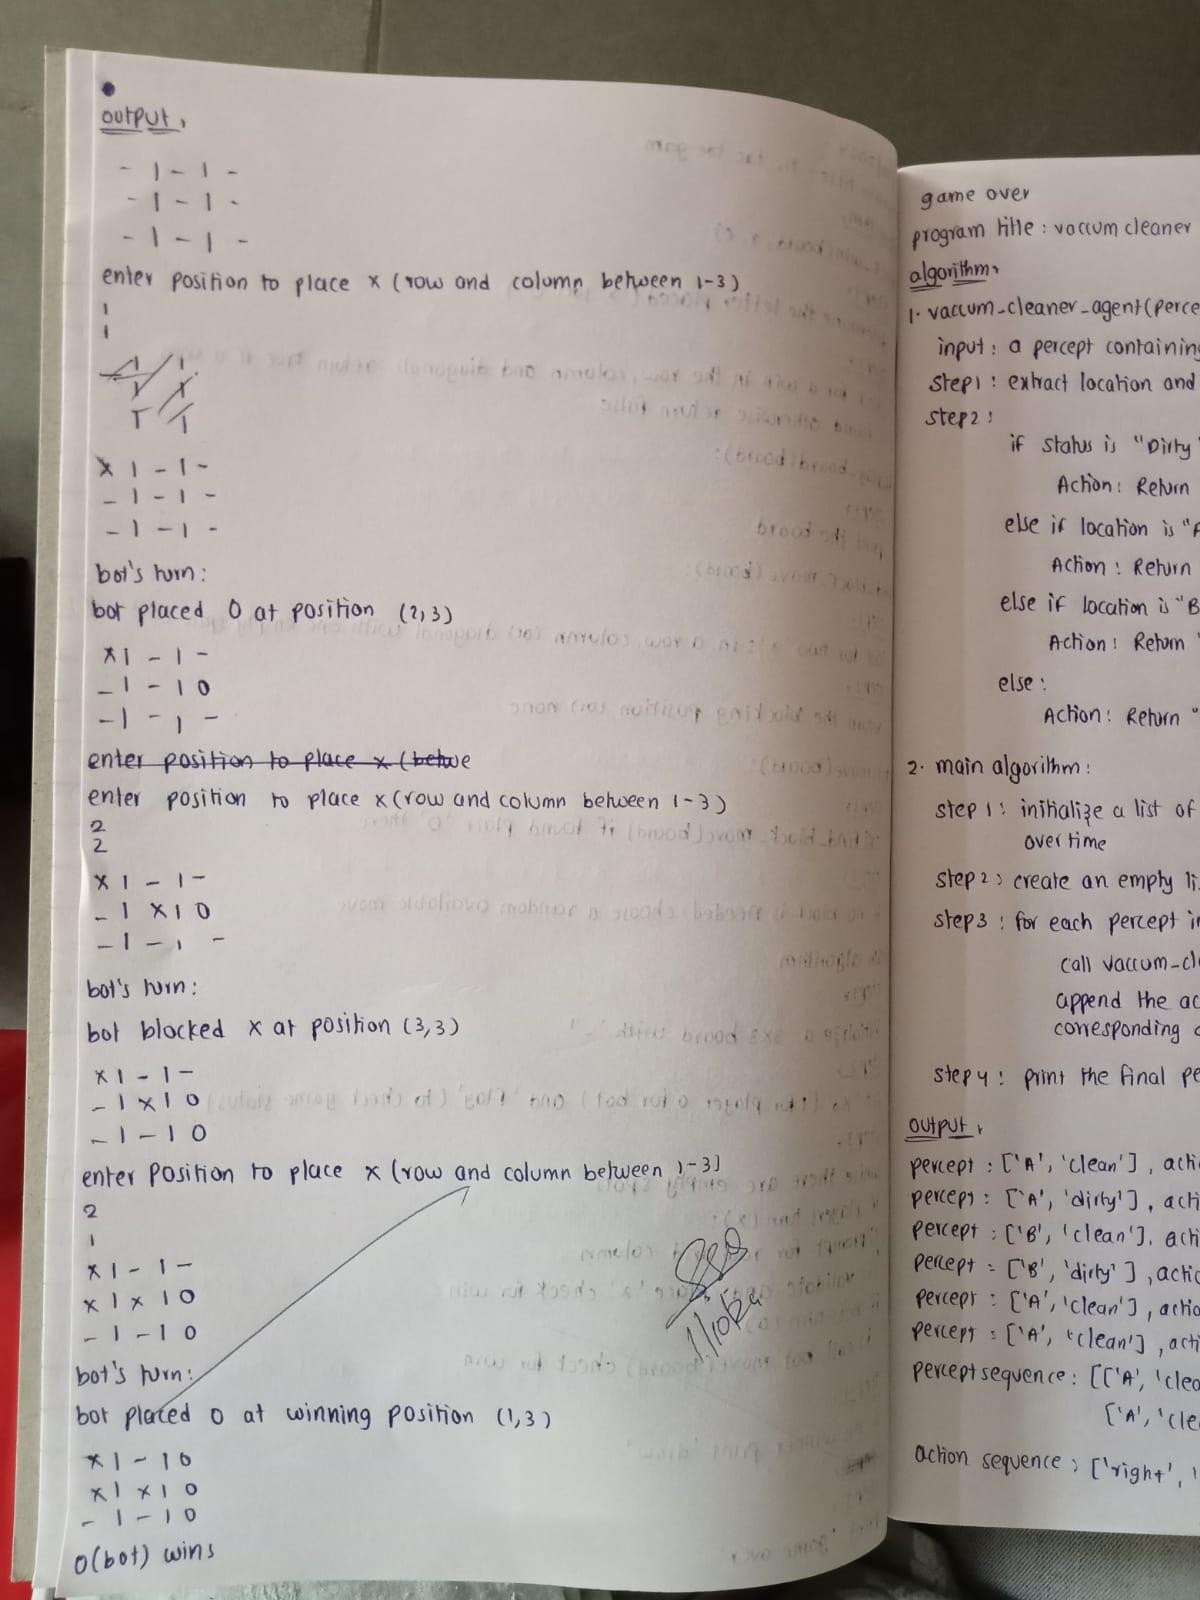 output,
- | - | -
- | - | -
- | - | -
enter position to place x (row and column between 1-3)
1
1
x | - | -
- | - | -
- | - | -
bot's turn:
bot placed 0 at position (2,3)
x | - | -
- | - | 0
- | - | -
enter position to place x (betwe
enter position to place x (row and column between 1-3)
2
2
x | - | -
- | x | 0
- | - | -
bot's turn:
bot blocked x at position (3,3)
x | - | -
- | x | 0
- | - | 0
enter position to place x (row and column between 1-3)
2
1
x | - | -
x | x | 0
- | - | 0
bot's turn:
bot placed 0 at winning position (1,3)
x | - | 0
x | x | 0
- | - | 0
0(bot) wins
game over
program title : vaccum cleaner
algorithm,
1. vaccum_cleaner_agent(perce
input : a percept containing
step1 : extract location and
step2 :
if status is "Dirty"
Action : Return
else if location is "A
Action : Return
else if location is "B
Action : Return "
else :
Action : Return "
2. main algorithm :
step 1 : initialize a list of
over time
step2 : create an empty li
step3 : for each percept in
call vaccum-cle
append the ac
corresponding
step4 : print the final pe
output,
percept : ['A', 'clean'], acti
percept : ['A', 'dirty'], acti
percept : ['B', 'clean'], acti
percept = ['B', 'dirty'], actio
percept : ['A', 'clean'], actio
percept : ['A', 'clean'], acti
percept sequence : [['A', 'clea
['A', 'cle
action sequence : ['right', '